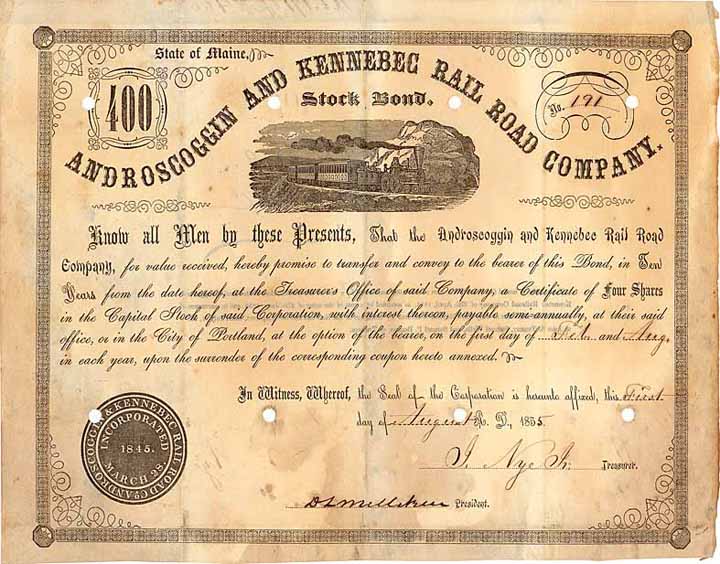 State of Maine.
400
ANDROSCOGGIN AND KENNEBEC RAIL ROAD COMPANY.
Stock Bond.
No. 191
Know all Men by these Presents, That the Androscoggin and Kennebec Rail Road
Company, for value received, hereby promise to transfer and convey to the bearer of this Bond, in Ten
Years from the date hereof, at the Treasurer's Office of said Company, a Certificate of Four Shares
in the Capital Stock of said Corporation, with interest thereon, payable semi-annually, at their said
office, or in the City of Portland, at the option of the bearer, on the first day of Feb. and Aug.
in each year, upon the surrender of the corresponding coupon hereto annexed.
In Witness, Whereof, the Seal of the Corporation is hereunto affixed, this First
day of August A. D., 1855
J. Nye Jr. Treasurer.
D L Milliken President.
ANDROSCOGGIN & KENNEBEC RAILROAD CO.
INCORPORATED
1845.
MARCH 28.